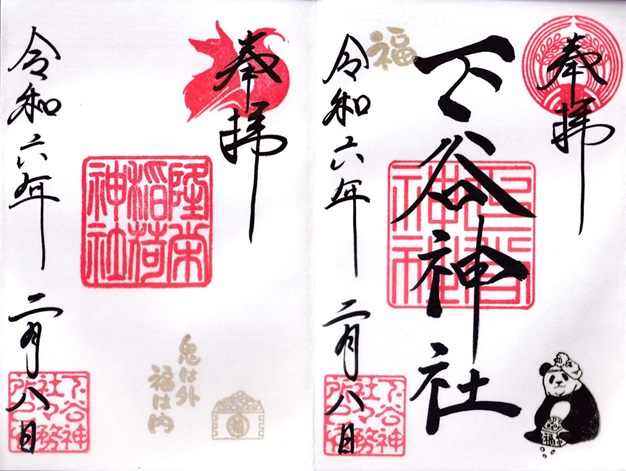 奉拝
下谷神社
福
令和六年
二月八日
下谷神社社務所之印
奉拝
隆栄稲荷神社
令和六年
二月八日
鬼は外
福は内
下谷神社社務所之印